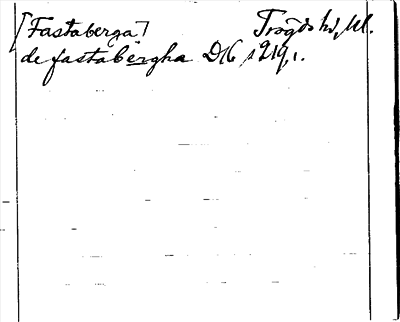 [Fastaberga] Trögds hd, Upl.
de fastabergha DS 1 219, 1.